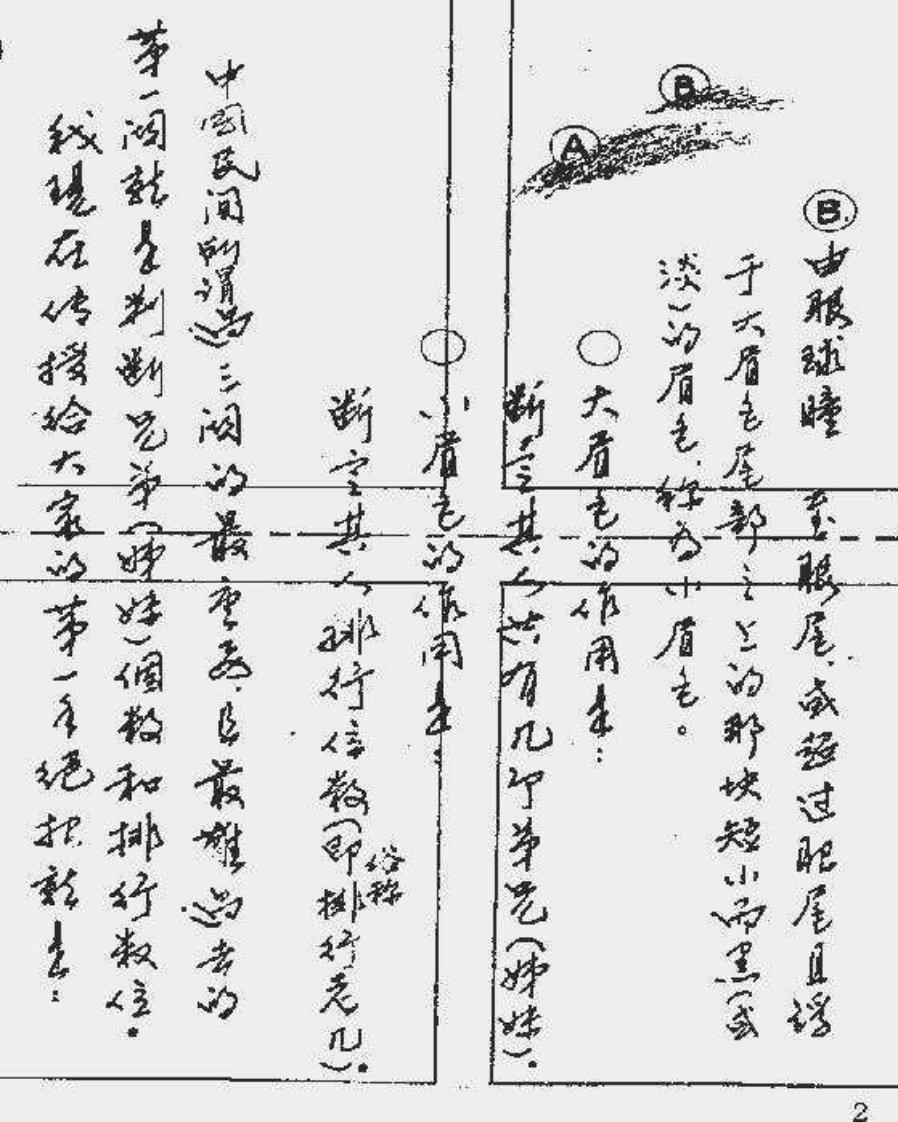 Ⓑ
Ⓐ
Ⓑ.由眼球瞳 至眼尾、或超过眼尾且译
于大眉毛尾部之上的那块短小而黑(或
淡)的眉毛.称为小眉毛。
○大眉毛的作用是:
断定其人共有几个弟兄(姊妹).
○小眉毛的作用是:
断定其人排行位数(即俗称排行老几).
中国民间所谓过三关的最重要、且最难过去的
第一关就是判断兄弟(姊妹)個数和排行数位.
我现在传授给大家的第一手绝招就是:
2